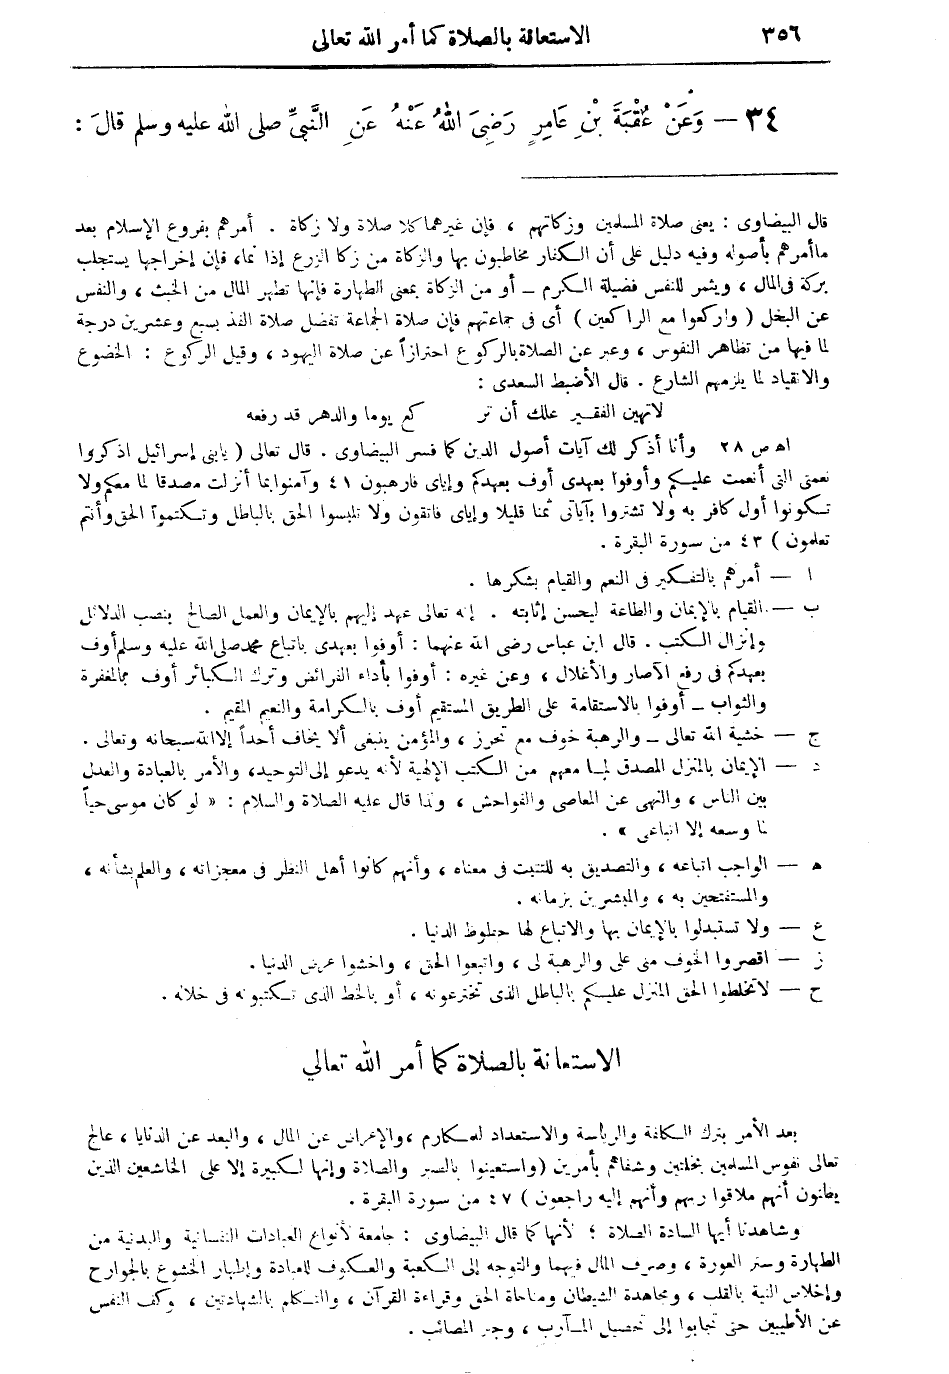 ٣٥٦ الاستعانة بالصلاة كما أمر الله تعالى
٣٤ — وَعَنْ عُقْبَةَ بْنِ عَامِرٍ رَضِيَ اللهُ عَنْهُ عَنِ النَّبِيِّ صلى الله عليه وسلم قالَ :
قال البيضاوى : يعنى صلاة المسلمين وزكاتهم ، فإن غيرهما كلا صلاة ولا زكاة . أمرهم بفروع الإسلام بعد
ما أمرهم بأصوله وفيه دليل على أن الكفار مخاطبون بها والزكاة من زكا الزرع إذا نما، فإن إخراجها يستجلب
بركة فى المال ، ويثمر للنفس فضيلة الكرم – أو من الزكاة بمعنى الطهارة فإنها تطهر المال من الخبث ، والنفس
عن البخل ( واركعوا مع الراكعين ) أى فى جماعتهم فإن صلاة الجماعة تفضل صلاة الفذ بسبع وعشرين درجة
لما فيها من تظاهر النفوس ، وعبر عن الصلاة بالركوع احترازاً عن صلاة اليهود ، وقيل الركوع : الخضوع
والانقياد لما يلزمهم الشارع . قال الأضبط السعدى :
لاتهين الفقير علك أن تر كع يوما والدهر قد رفعه
اه ص ٢٨ وأنا أذكر لك آيات أصول الدين كما فسر البيضاوى . قال تعالى ( يابنى إسرائيل اذكروا
نعمتى التى أنعمت عليكم وأوفوا بعهدى أوف بعهدكم وإياى فارهبون ٤١ وآمنوا بما أنزلت مصدقا لما معكم ولا
تكونوا أول كافر به ولا تشتروا بآياتى ثمنا قليلا وإياى فاتقون ولا تلبسوا الحق بالباطل وتكتموا الحق وأنتم
تعلمون ) ٤٣ من سورة البقرة .
ا — أمرهم بالتفكير فى النعم والقيام بشكرها .
ب — القيام بالإيمان والطاعة ليحسن إثابته . إنه تعالى عهد إليهم بالإيمان والعمل الصالح بنصب الدلائل
وإنزال الكتب . قال ابن عباس رضى الله عنهما : أوفوا بعهدى باتباع محمد صلى الله عليه وسلم أوف
بعهدكم فى رفع الآصار والأغلال ، وعن غيره : أوفوا بأداء الفرائض وترك الكبائر أوف بالمغفرة
والثواب – أوفوا بالاستقامة على الطريق المستقيم أوف بالكرامة والنعيم المقيم .
ج — خشية الله تعالى – والرهبة خوف مع تحرز ، والمؤمن ينبغى ألا يخاف أحداً إلا الله سبحانه وتعالى .
د — الإيمان بالمنزل المصدق لما معهم من الكتب الإلهية لأنه يدعو إلى التوحيد، والأمر بالعبادة والعدل
بين الناس ، والنهى عن المعاصى والفواحش ، ولذا قال عليه الصلاة والسلام : « لو كان موسى حياً
لما وسعه إلا اتباعى » .
ه — الواجب اتباعه ، والتصديق به للتثبت فى معناه ، وأنهم كانوا أهل النظر فى معجزاته ، والعلم بشأنه ،
والمستفتحين به ، والمبشرين بزمانه .
ع — ولا تستبدلوا بالإيمان بها والاتباع لها حظوظ الدنيا .
ز — اقصروا الخوف منى على والرهبة لى ، واتبعوا الحق ، واخشوا عرض الدنيا .
ح — لاتخلطوا الحق المنزل عليكم بالباطل الذى تخترعونه ، أو بالخط الذى تكتبونه فى خلاله .
الاستعانة بالصلاة كما أمر الله تعالى
بعد الأمر بترك الكلفة والرياسة والاستعداد للمكارم ، والإعراض عن المال ، والبعد عن الدنايا ، عالج
تعالى نفوس المسلمين بخلتين وشفاهم بأمرين (واستعينوا بالصبر والصلاة وإنها لكبيرة إلا على الخاشعين الذين
يظنون أنهم ملاقوا ربهم وأنهم إليه راجعون ) ٤٧ من سورة البقرة .
وشاهدنا أيها السادة الصلاة ؛ لأنها كما قال البيضاوى : جامعة لأنواع العبادات النفسانية والبدنية من
الطهارة وستر العورة ، وصرف المال فيهما والتوجه إلى الكعبة والعكوف للعبادة وإظهار الخشوع بالجوارح
وإخلاص النية بالقلب ، ومجاهدة الشيطان ومناجاة الحق وقراءة القرآن ، والتكلم بالشهادتين ، وكف النفس
عن الأطيبين حتى تجابوا إلى تحصيل المآرب ، وجبر المصائب .